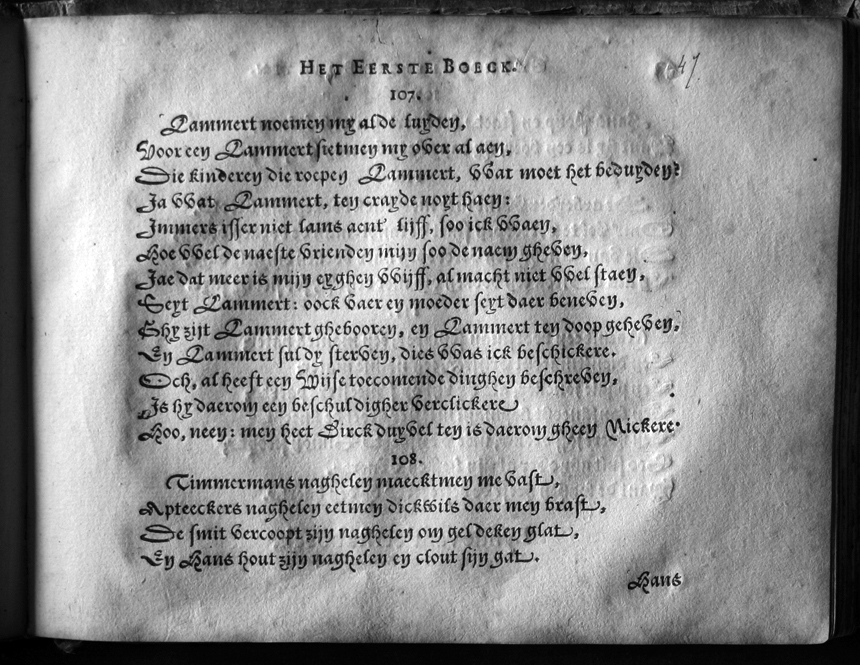 HET EERSTE BOECK.
47
107.
Lammert noemen my al de luyden,
Voor een Lammert sietmen my over al aen,
Die kinderen die roepen Lammert, wat moet het beduyden?
Ja wat Lammert, ten crayde noyt haen:
Immers isser niet lams aent lijff, soo ick waen,
Hoe wel de naeste vrienden mijn soo de naem gheven,
Jae dat meer is mijn eyghen wijff, al macht niet wel staen,
Seyt Lammert: oock vaer en moeder seyt daer beneven,
Ghy zijt Lammert ghebooren, en Lammert ten doop geheven,
En Lammert suldy sterven, dies was ick beschickere.
Och, al heeft een Wijse toecomende dinghen beschreven,
Is hy daerom een beschuldigher verclickere
Hoo, neen: men heet Dirck duyvel ten is daerom gheen Nickere.
108.
Timmermans naghelen maecktmen me vast,
Apteeckers naghelen eetmen dickwils daer men brast,
De smit vercoopt zijn naghelen om geldeken glat,
En Hans hout zijn naghelen en clout sijn gat.
Hans